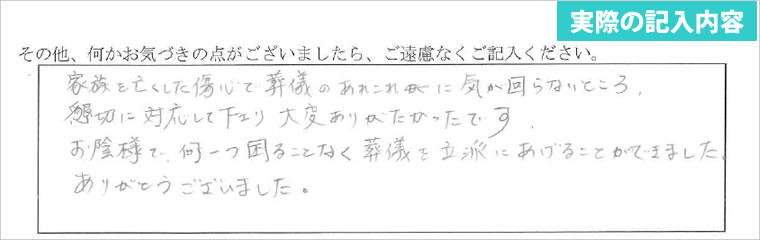 実際の記入内容
その他、何かお気づきの点がございましたら、ご遠慮なくご記入ください。
家族を亡くした傷心で葬儀のあれこれに気が回らないところ、
懇切に対応して下さり大変ありがたかったです。
お陰様で、何一つ困ることなく葬儀を立派にあげることができました。
ありがとうございました。